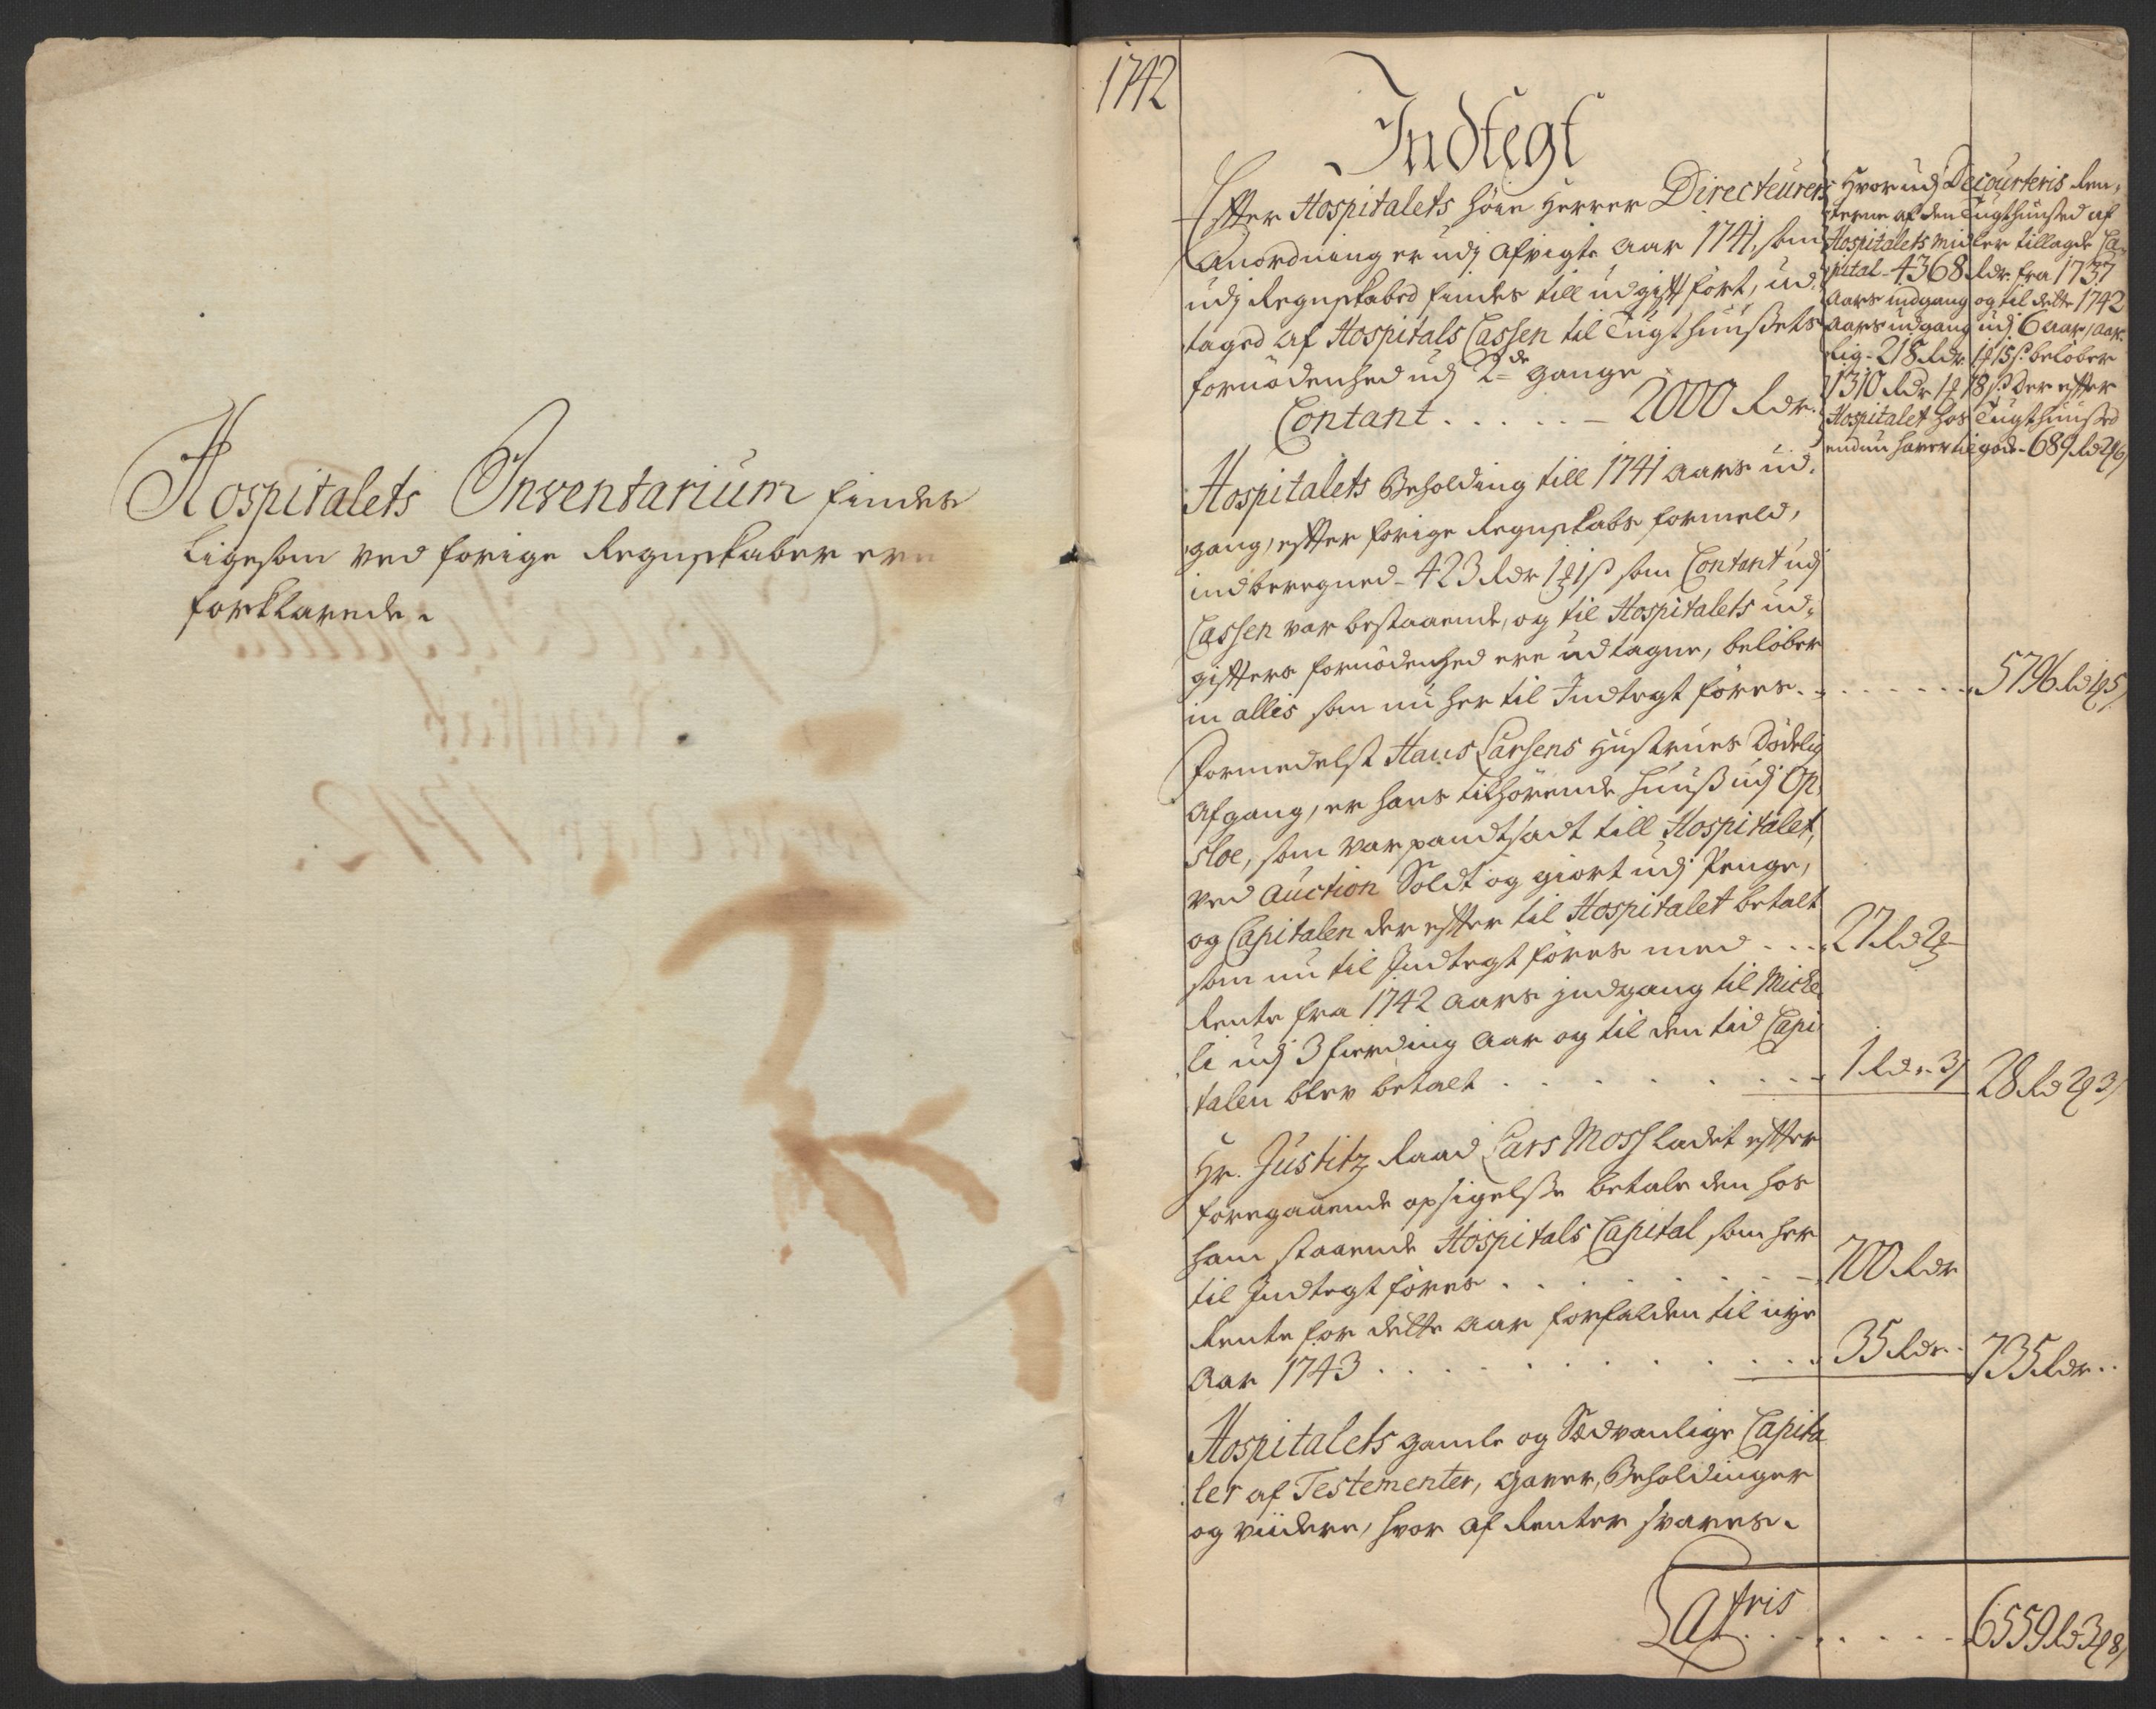 Hospitalets Inventarium findes
ligesom ved forige Regnskaber ere
forklarede.
1742
Indtegt
Effter Hospitalets höie Herrer Directeurers
Anordning er udj afvigte aar 1741, som
udj Regnskabed findes till udgift fört, ud-
taged af Hospitals Cassen til Tugthuußets
fornödenhed udj 2de gange
Contant . . . . . 2000 Rdr.
Hvor udj Decourteris Ren-
terne af den Tugthuused af
Hospitalets midler tillagde Ca-
pital - 4368 Rdr. fra 1737
aars indgang og til dette 1742
aars udgang udj 6 aar, aar-
lig - 218 Rdr 1 ort 15 s. belöber
1310 Rdr 1 ort 18 s. Der effter
Hospitalet hos Tugthuused
endnu haver til gode - 689 Rd 2 ort 6 s
Hospitalets Beholding till 1741 aars ud-
gang, effter forige Regnskabs formeld,
indberegned - 423 Rdr 1 ort 1 s som Contant udj
Cassen var bestaaende, og til Hospitalets ud-
gifters fornödenhed ere udtagne, belöber
in alles som nu her til Indtegt föres . . . . 5796 Rd 1 ort 5 s
Formedelst Hans Larsens Hustrues Dödelig
Afgang, er hans tilhörende Huuß udj Op-
sloe, som var pandtsadt till Hospitalet,
ved Auction Soldt og giort udj Penge,
og Capitalen der effter til Hospitalet betalt
som nu til Indtegt föres med . . . 27 Rd 2 ort
Rente fra 1742 aars indgang til Miche-
li udj 3 fierding Aar og til den tid Capi-
talen blev betalt . . . . . . 1 Rdr. 3 s 28 Rd 2 ort 3 s
Hr. Justitz Raad Lars Moss ladet effter
foregaaende opsigelsse betale den hos
ham staaende Hospitals Capital som her
til Indtegt föres . . . . . . 700 Rdr
Rente for dette Aar forfalden til nye
Aar 1743 . . . . . . . 35 Rdr. 735 Rdr. .
Hospitalets gamle og Sædvanlige Capita-
ler af Testementer, Gaver, Beholdinger
og viidere, hvor af Renter svares.
Latris . . . . . 6559 Rd 3 ort 8 s